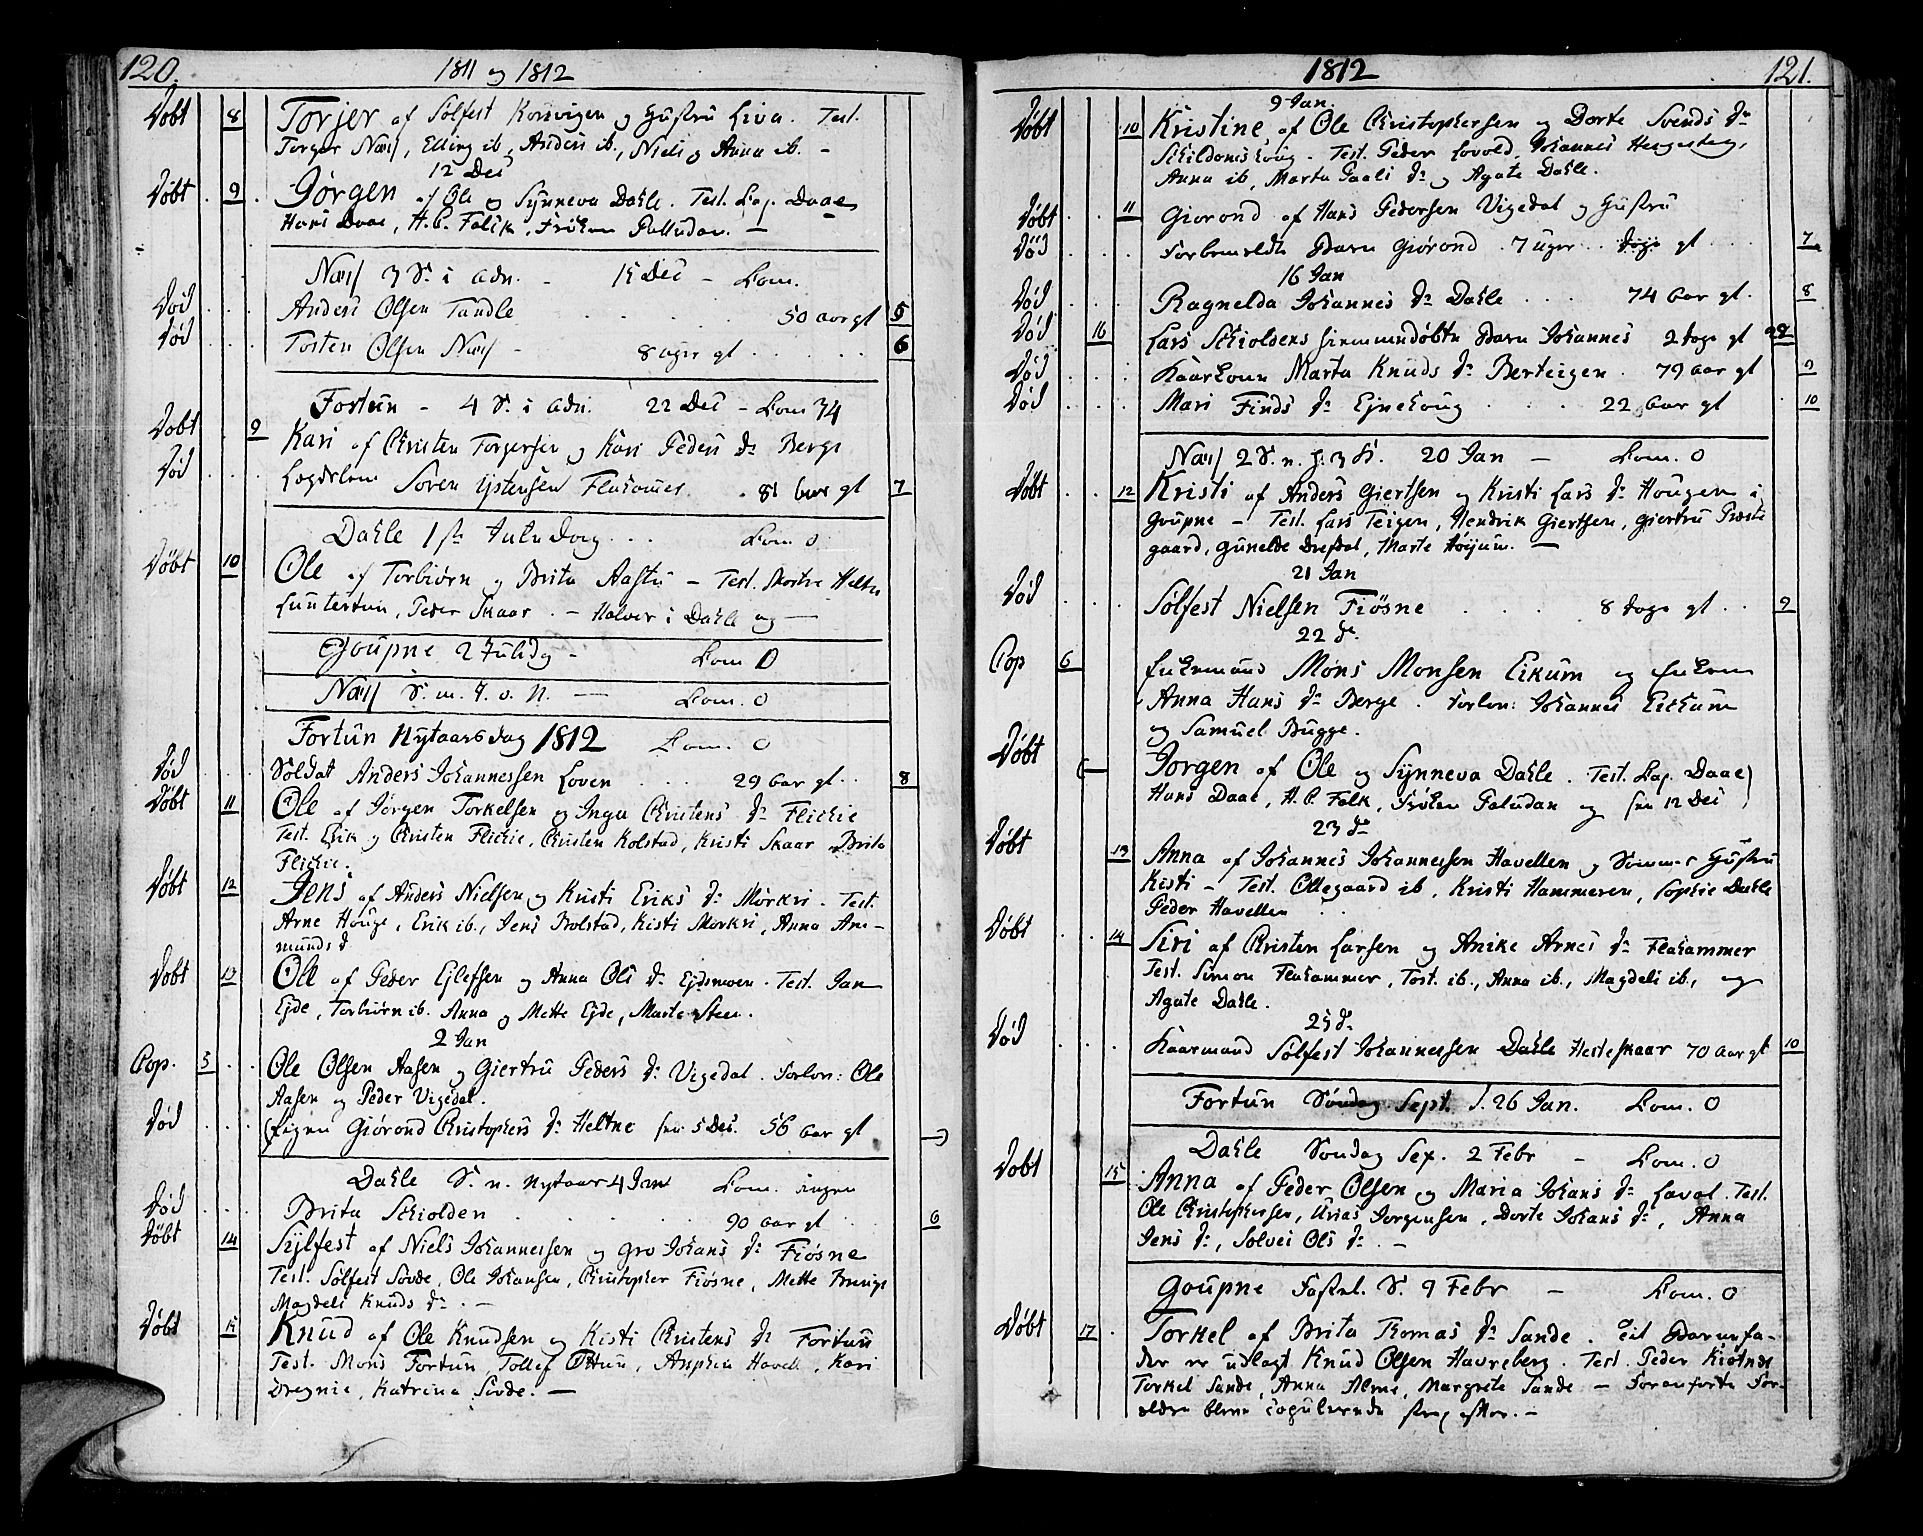 120.
1811 og 1812
Døbt 8 Torjer af Sølfest Korsvigen og Hustru Liva. Test.
Torger Næss, Elling ib, Anders ib., Niels og Anna ib. -
12 Des
Døbt 9 Jørgen af Ole og Synneva Dahle. Test. Cap. Daae,
Hans Daae, H. C. Falck, Frøken Palludan. -
Næss 3 S. i Adv. - 15 Des - Com.
Død Anders Olsen Tandle 50 Aar gl 5
Død Tosten Olsen Næss - 8 uger gl 6
Fortun - 4 S. i Adv. 22 Des - Com 34
Døbt 9 Kari af Christen Torgersen og Kari Peders Dr Berge
Død Lægdslem Søren Ystensen Flahamer 81 Aar gl 7
Dahle 1ste Juledag Com. 0
Døbt 10 Ole af Torbiørn og Brita Aasetu - Test. Mortve Heltne
Luntertun, Peder Skaar. - Halvor i Dahle og -
Goupne 2 Juledg - Com 0
Næss S. m. J. o. N. - Com. 0
Fortun Nytaarsdag 1812 Com. 0
Død Soldat Anders Johannessen Loven 29 Aar gl 8
Døbt 11 Ole af Jørgen Torkelsen og Inga Christens Dr Flickie
Test. Erik og Christen Flickie, Christen Kolstad, Kristi Skaar, Brita
Flickie.
Døbt 12 Jens af Anders Nielsen og Kristi Eriks Dr Mørkri. Test.
Arne Houge, Erik ib., Jens Bolstad, Kisti Mørkri, Anna Am-
munds d
Døbt 13 Ole af Peder Ejlefsen og Anna Ols Dr Ejdsmoen. Test. Jan
Ejde, Torbiørn ib. Anna og Mette Ejde, Marte Steen.
2 Jan
Cop. 5 Ole Olsen Aasen og Giertru Peders Dr Vigedal. Forlov: Ole
Aasen og Peder Vigedal.
Død Pigen Giørond Christophers Dr Heltne fra 5 Des. 56 Aar gl
Dahle S. n. Nytaar 4 Jan Com. ingen
Død Brita Schiolden 90 Aar gl 6
Døbt 14 Sylfest af Niels Johannessen og Gro Johans Dr Fiøsne
Test. Sølfest Søvde, Ole Johansen, Christopher Fiøsne, Mette Bringe
Magdeli Knuds Dr. -
Døbt 15 Knud af Ole Knudsen og Kisti Christens Dr Fortun
Test. Mons Fortun, Tollef Ottun, Anphin Havell, Kari
Dregnie, Katrina Søvde. -
1812
121.
9 Jan.
Døbt 10 Kristine af Ole Christophersen og Dorte Svends Dr
Schildenshoug. Test. Peder Lovold, Johannes Hengesteg,
Anna ib, Marta Paals Dr og Agate Dahle.
Døbt 11 Giorond af Hans Pedersen Vigedal og Hustru
Død Forbemeldte Barn Giørond 7 uger gl 7
16 Jan
Død Ragnelda Johannes Dr Dahle 74 Aar gl. 8
Død 16 Lars Schioldens hiemmedøbte Barn Johannes 2 dage gl
Død Kaarkone Marta Knuds Dr Berteigen 79 Aar gl 9
Død Mari Finds Dr Ejnehoug 22 Aar gl 10
Næss 2 S. n. H. 3 K. 20 Jan - Com. 0
Døbt 12 Kristi af Anders Giertsen og Kristi Lars Dr Hougen i
Goupne - Test. Lars Teigen, Hendrik Giertsen, Giertru Præste
gaard, Gunelde Drefdal, Marte Høijum. -
21 Jan
Død Sølfest Nielsen Fiøsne 8 dage gl 9
22 d.
Cop 6 Enkemand Mons Monsen Eikum og Enken
Anna Hans Dr Berge. Forlov: Johannes Eickum
og Samuel Bugge.
Døbt Jørgen af Ole og Synneva Dahle. Test. Cap. Daae
Hans Daae, H. C. Falk, Frøken Paludan og fra 12 Des
23 d
Døbt 13 Anna af Johannes Johannessen Havellen og Hustru
Kisti - Test. Ollegaard ib, Kristi Hammeren, Sophie Dahle
Peder Havellen
Døbt 14 Siri af Christen Larsen og Anike Arnes Dr Flahammer
Test. Simon Flahammer, Tost. ib., Anna ib., Magdeli ib., og
Agate Dahle.
25 d.
Død Kaarmand Sølfest Johannessen Dahle Hesteskaar 70 Aar gl 10
Fortun Søndag Sept. d. 26 Jan. Com. 0
Dahle Søndag Sex. 2 Febr - Com. 0
Døbt 15 Anna af Peder Olsen og Maria Johans Dr Laval. Test.
Ole Christophersen, Urias Jørgensen, Dorte Johans Dr, Anna
Jens Dr, Solvei Ols Dr. -
Goupne Fastel. S. 9 Febr - Com. 0
Døbt 17 Torkel af Brita Thomas Dr Sande. Til Barnefa-
der er udlagt Knud Olsen Havreberg. Test. Peder Kiotnes
Torkel Sande, Anna Alme, Margrete Sande - Foranførte For-
ældre bleve copulerede strax efter. -